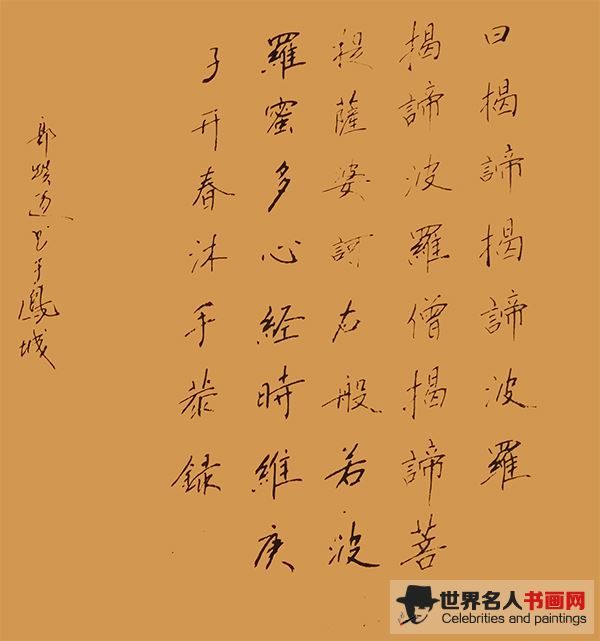 曰揭諦揭諦波羅
揭諦波羅僧揭諦菩
提薩婆訶右般若波
羅蜜多心経時維庚
子开春沐手恭録
郭书于鳳城
世界名人书画网
Celebrities and paintings